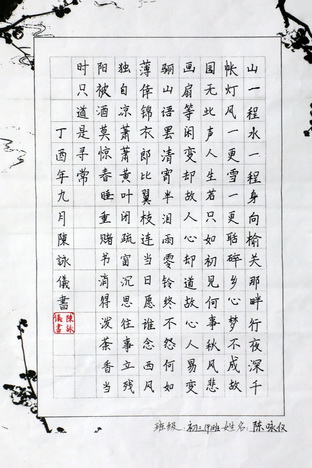 山一程水一程身向榆关那畔行夜深千
帐灯风一更雪一更聒碎乡心梦不成故
国无此声人生若只如初见何事秋风悲
画扇等闲变却故人心却道故心人易变
骊山语罢清宵半泪雨零铃终不怨何如
薄倖锦衣郎比翼枝连当日愿谁念西风
独自凉萧萧黄叶闭疏窗沉思往事立残
阳被酒莫惊春睡重赌书消得泼茶香当
时只道是寻常
丁酉年九月陳詠儀書
陳詠儀書
班级: 姓名:陈咏仪